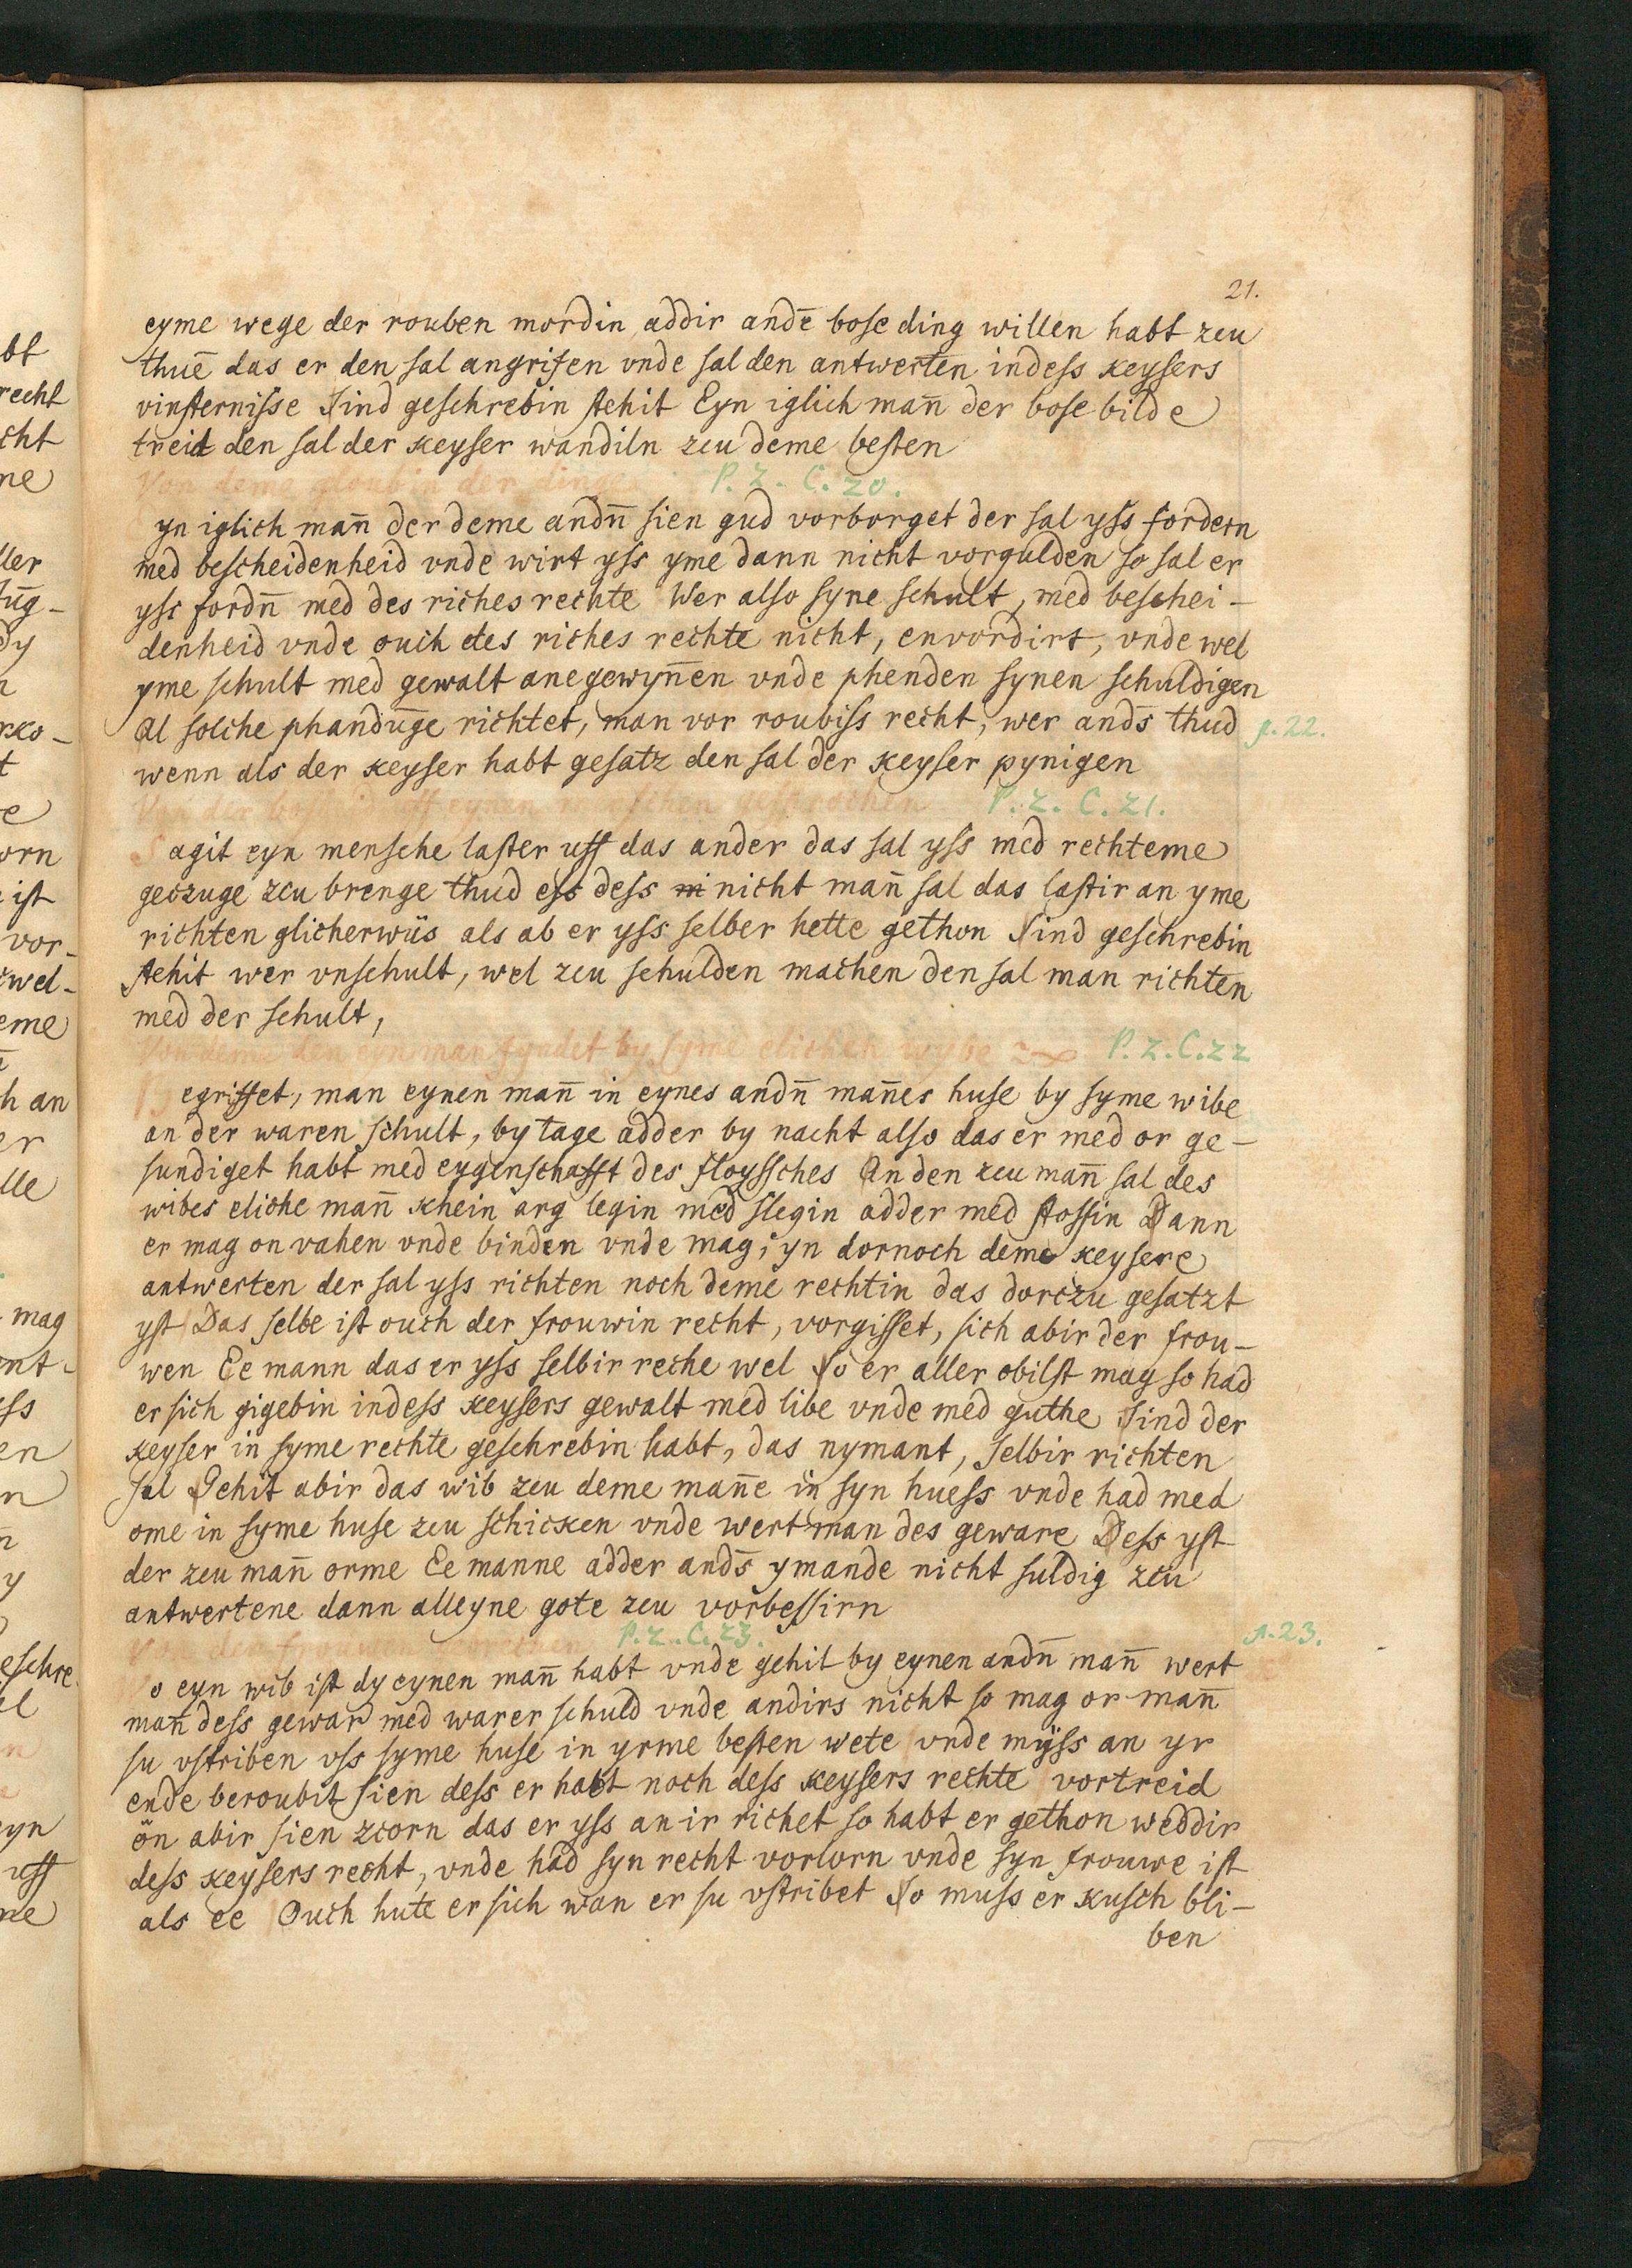 21.
eyme wege der rouben mordin addir andē bose ding willen habt zcu
thuē das er den sal angrifen vnde sal den antwerten indess keysers
vinsternisse Sind geschrebin stehit Eyn iglich mañ der bose bilde
treid den sal der keyser wandiln zcu deme besten
Von deme gloubin der dinge P. 2. C. 20.
yn iglich mañ der deme andn̄ sien gud vorborget der sal yss fordern
med bescheidenheid vnde wirt yss yme dann nicht vorgulden so sal er
yss fordn̄ med des riches rechte Wer also syne schult, med beschei-
denheid vnde ouch des riches rechte nicht, envordirt, vnde wel
yme schult med gewalt anegewyn̄en vnde phenden synen schuldigen
Al solche phandūge richtet, man vor roubiss recht, wer and̄s thud
p. 22.
wenn als der keyser habt gesatz den sal der keyser pynigen
Von der uff eynen menschen gesprochen P. 2. C. 21.
Sagit eyn mensche laster uff das ander das sal yss med rechteme
geczuge zcu brenge thud ess dess ni nicht mañ sal das lastir an yme
richten glicherwüs als ab er yss selber hette gethon Sind geschrebin
stehit wer vnschult, wel zcu schulden machen den sal man richten
med der schult,
Von deme den eyn man fyndet by syme elichen wybe P. 2. C. 22
Begriffet, man eynen mañ in eynes andn̄ mañes huse by syme wibe
an der waren schult, by tage adder by nacht also das er med or ge-
sundiget habt med eygenschafft des floyssches An den zcu mañ sal des
wibes eliche mañ khein arg legin med slegin adder med stossin Dann
er mag on vahen vnde binden vnde mag, yn dornoch deme keysere
antwerten der sal yss richten noch deme rechtin das dorczu gesatzt
yst Das selbe ist ouch der frouwin recht, vorgisset, sich abir der frou-
wen Ee mann das er yss selbir reche wel So er aller obilst mag so had
er sich gigebin indess keysers gewalt med libe vnde med guthe Sind der
keyser in syme rechte geschrebin habt, das nymant, selbir richten
sal Gehit abir das wib zcu deme mañe in syn huess vnde had med
ome in syme huse zcu schicken vnde wert man des geware Dess yst
der zcu mañ orme Ee manne adder and̄s ymande nicht suldig zcu
antwertene dann alleyne gote zcu vorbessirn
Von der frouwen P. 2. C. 23.
p. 23.
o eyn wib ist dy eynen mañ habt vnde gehit by eynen andn̄ mañ wert
mañ dess gewar med warer schuld vnde andirs nicht so mag or mañ
su vstriben vss syme huse in yrme besten wete vnde mÿss an yr
ende beroubit sien dess er habt noch dess keysers rechte vortreid
ön abir sien zcorn das er yss an ir richet so habt er gethon weddir
dess keysers recht, vnde had syn recht vorlorn vnde syn frouwe ist
als ee Ouch hute er sich wan er su vstribet So muss er kusch bli-
ben